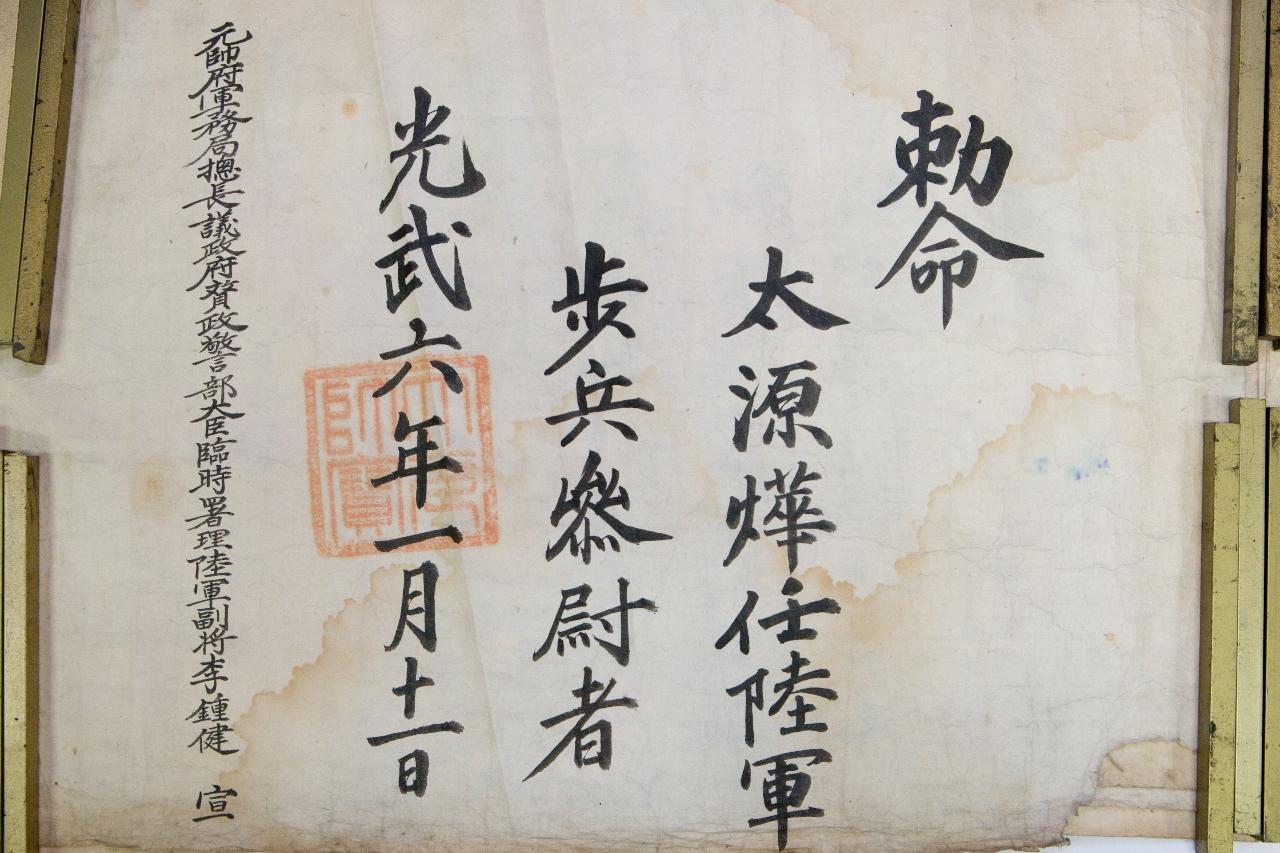 勅命
太源燁任陸軍
步兵參尉者
光武六年一月十一日
元帥府軍務局總長議政府贊政警部大臣臨時署理陸軍副將李鍾健 宣